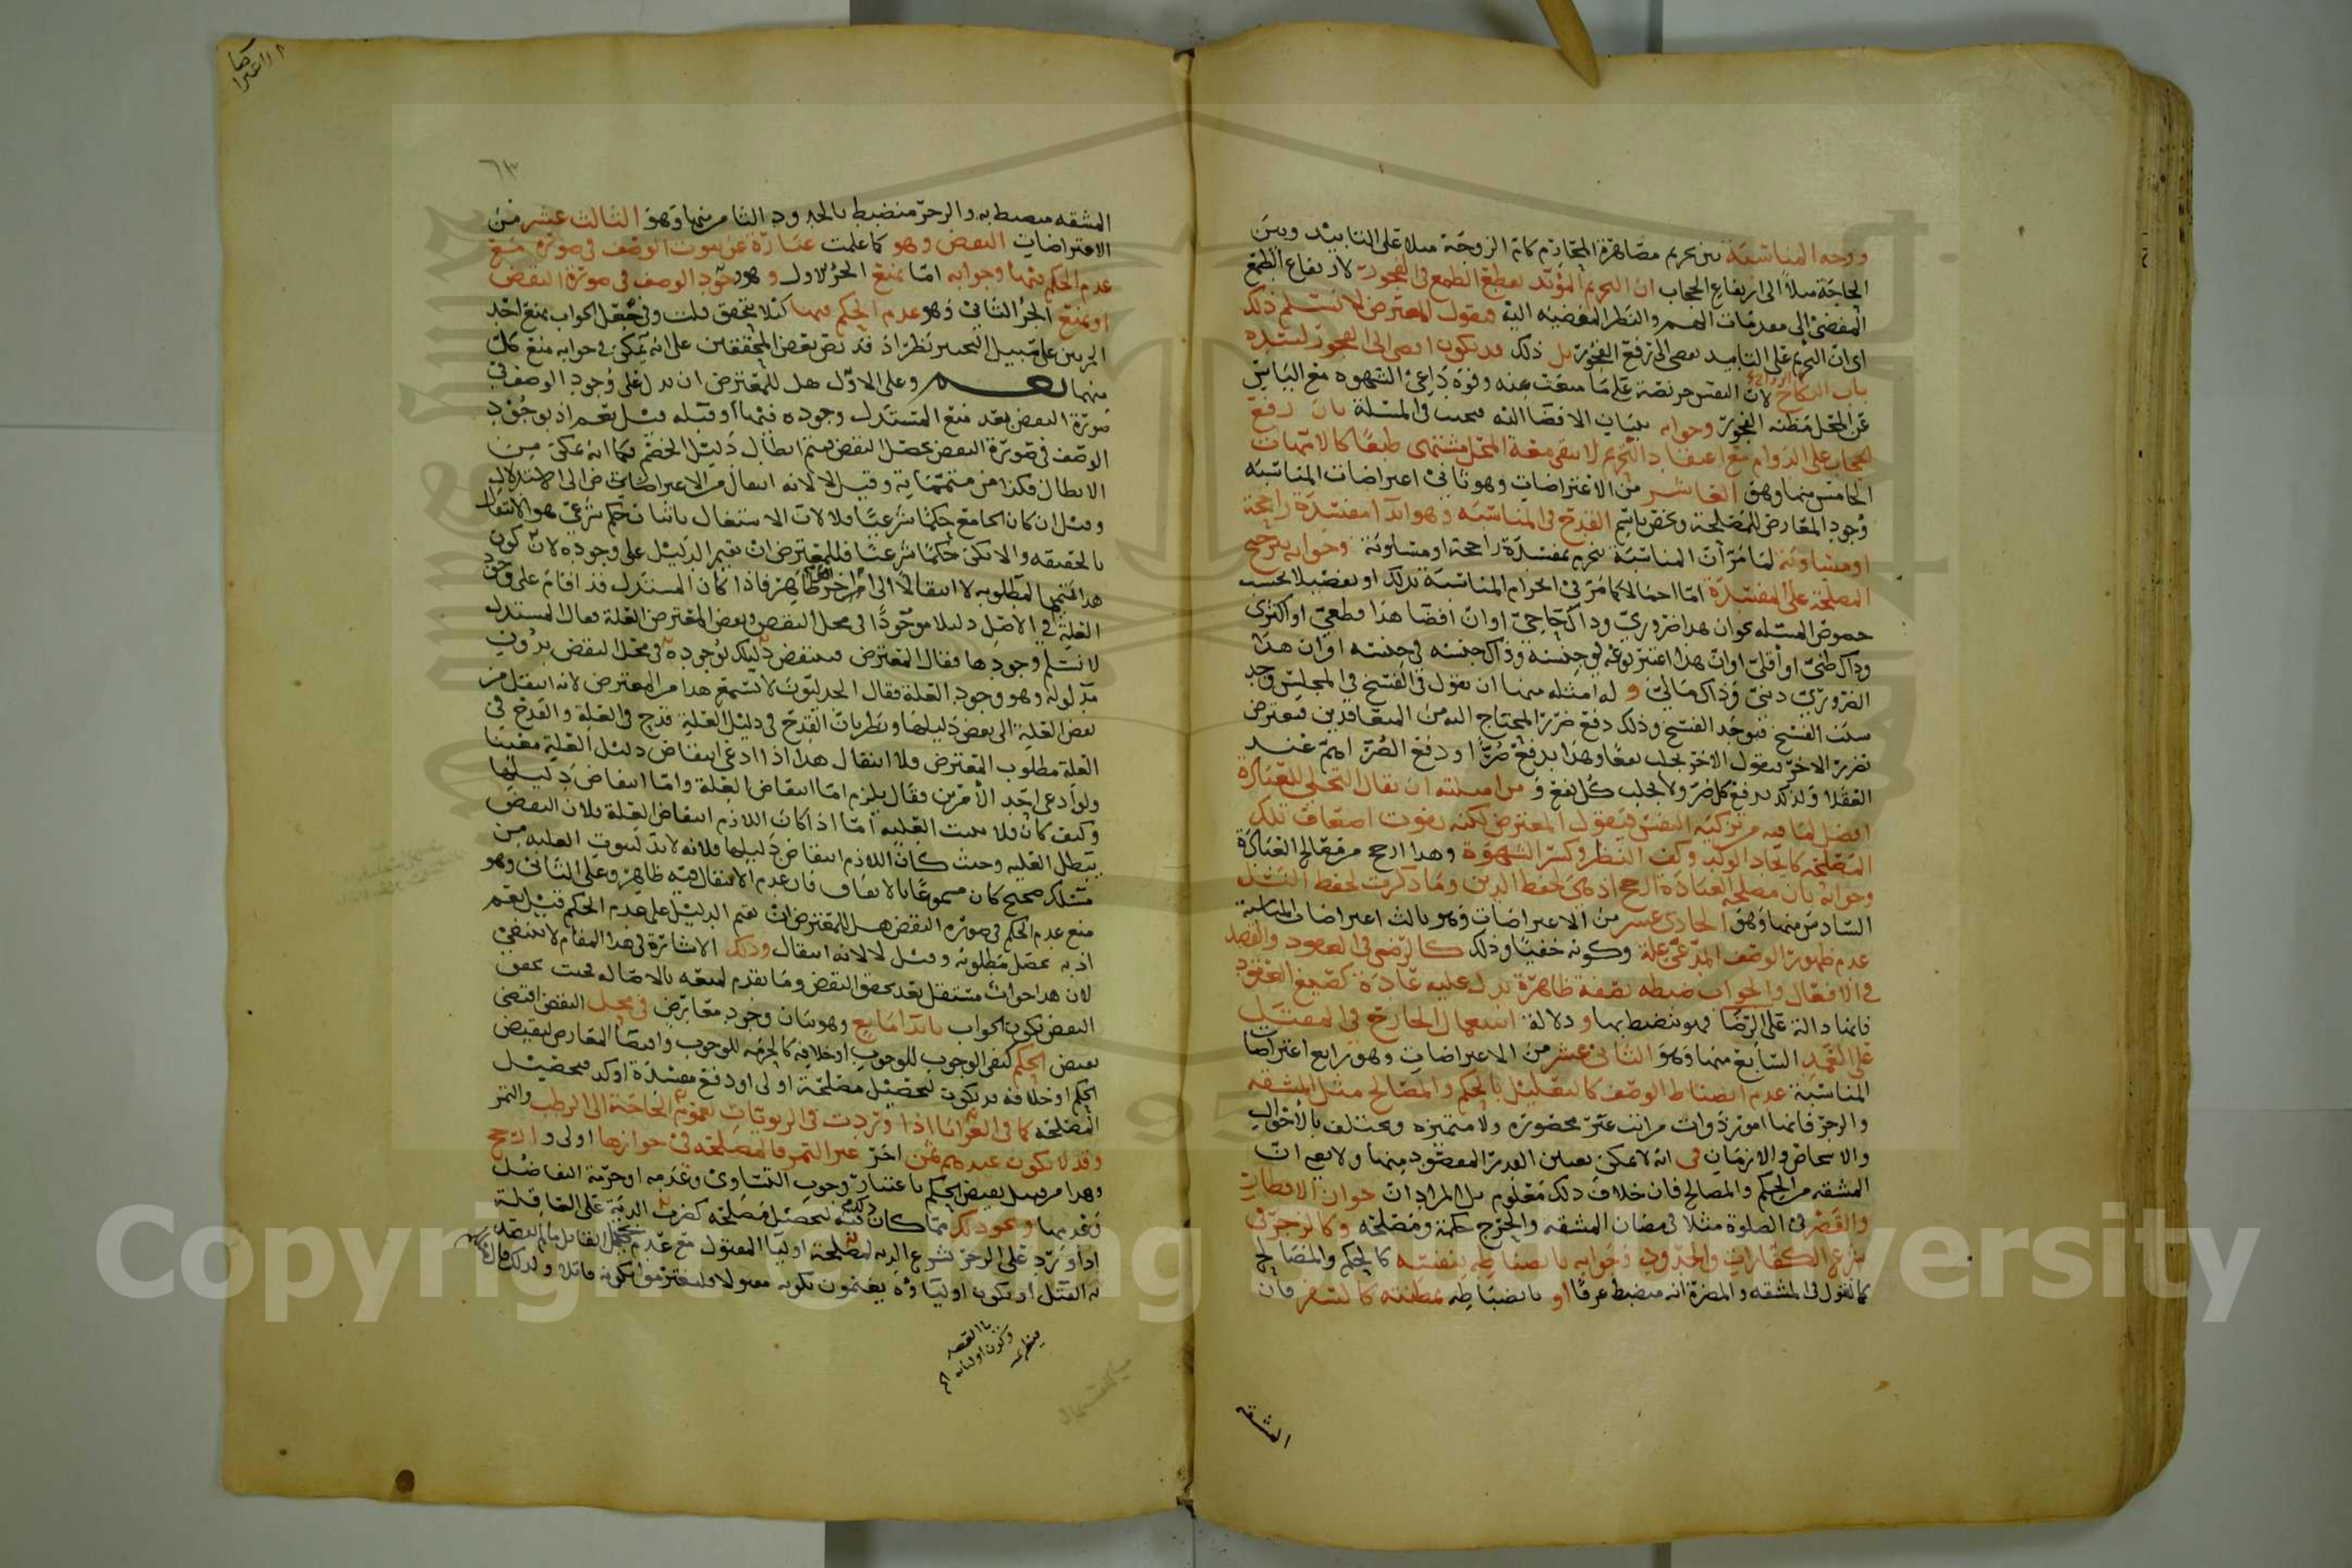 ووجه المناسبة بين تحريم مصاهرة المحارم كامّ الزوجة مثلا على التابيد وبين
الحاجة مثلا الى ارتفاع الحجاب ان التحريم المؤبد يقطع الطمع في الفجور لارتفاع الطمع
المفضي الى مقدمات الهم والنظر المفضيه اليه فيقول المعترض لا نسلم ذلك
اي ان التحريم على التابيد يفضي الى رفع الفجور بل ذلك قد يكون افضى الى الفجور لسده
باب النكاح لان النفس حريصة على ما منعت عنه وقوة داعي الشهوه مع الياس
عن المحل مظنه الفجور وجوابه ببيان الافضا اليه فيجيب في المسئلة بان رفع
الحجاب على الدوام مع اعتقاد التحريم لا يبقى معه المحل مشتهى طبعًا كالامهات
الخامس منها وهو العاشر من الاعتراضات وهو ثاني اعتراضات المناسبه
وجود المعارض للمصلحة ويخص باسم القدح في المناسبه وهو ابدا مفسدة راجحة
او مساوية لما مر ان المناسبة تنخرم بمفسدة راجحة او مساوية وجوابه بترجيح
المصلحة على المفسدة امّا اجمالا كما مر في انخرام المناسبة بذلك او تفصيلا بحسب
خصوص المسئله نحو ان هذا ضروريّ وذاك حاجيّ او انّ افضا هذا قطعيّ او اكثري
وذاك ظنيّ او اقليّ او ان هذا اعتبر نوعه في جنسه وذاك جنسه في جنسه او ان هذا
الضروريّ دينيّ وذاك ماليّ و له امثله منها ان نقول في الفسخ في المجلس وجد
سبب الفسخ فيوجد الفسخ وذلك دفع ضرر المحتاج اليه من المتعاقدين فيعترض
بضرر الاخر فيقول الاخر يجلب نفعًا وهذا يدفع ضُرّا ودفع الضرّ اهمّ عند
العقلا ولذلك يدفع كل ضر ولا يجلب كل نفع و من امثلته ان يقال التخلي للعبادة
افضل لما فيه من تزكية النفس فيقول المعترض لكنه يفوت اضعاف تلك
المصلحه كايجاد الولد وكف النظر وكسر الشهوة وهذا ارجح من مصالح العبادة
وجوابه بان مصلحة العبادة ارجح اذ هي لحفظ الدين وما ذكرت لحفظ النسل
السادس منها وهو الحادي عشر من الاعتراضات وهو ثالث اعتراضات المناسبة
عدم ظهور الوصف المدّعى علة وكونه خفيًا وذلك كالرضى في العقود والقصد
في الافعال والجواب ضبطه بصفة ظاهرة يدل عليه عادة كصيغ العقود
فانها دالة على الرضا فهو ينضبط بها و دلالة استعمال الجارح في المقتل
على العمد السابع منها وهو الثاني عشر من الاعتراضات وهو رابع اعتراضات
المناسبة عدم انضباط الوصف كالتعليل بالحكم والمصالح مثل المشقه
والزجر فانها امور ذوات مراتب غير محصوره ولا متميزه وتختلف بالاحوال
والاشخاص والازمان في انه لا يمكن تعيين القدر المقصود منها
المشقه من الحكم والمصالح فان خلاف ذلك معلوم بل المراد ان جواز الافطار
والقصر في الصلوة مثلا في مضان المشقه والحرج حكمة ومصلحة وكالزجر في
شرع الكفارات والحدود وجوابه بانضباطه بنفسه كالحكم والمصالح
كما نقول في المشقه والمضرة انه منضبط عرفًا او بانضباطه بمظنته كالسفر فان
المشقه
المشقه منضبطة به والزجر منضبط بالحدود الثامن منها وهو الثالث عشر من
الاعتراضات النقض وهو كما علمت عبارة عن ثبوت الوصف في صورة مع
عدم الحكم فيها وجوابه امّا بمنع الجزء الاول وهو وجود الوصف في صورة النقض
او بمنع الجزء الثاني وهو عدم الحكم فيها كيلا يتحقق قلت وفي جعل الجواب بمنع احد
الجزئين على سبيل التخيير نظر اذ قد نص بعض المحققين على انه يمكن في جوابه منع كل
منهما نعم وعلى الاوّل هل للمعترض ان يدل على وجود الوصف في
صورة النقض بعد منع المستدل وجوده فيها او قبله قيل نعم اذ بوجود
الوصف في صورة النقض يحصل النقض فيتم ابطال دليل الخصم فكما انه يمكن من
الابطال فكذا من متمماته وقيل لا لانه انتقال من الاعتراض الى الاستدلال
وقيل ان كان الجامع حكمًا شرعيًا فلا لان الاشتغال باثبات حكم شرعي هو الانتقال
بالحقيقه والا يكن حكمًا شرعيًا فللمعترض ان يقيم الدليل على وجوده لان كون
هذا متمما لمطلوبه لا انتقالًا الى امر اخر ظاهر فاذا كان المستدل قد اقام على وجود
العلة في الاصل دليلا موجودًا في محل النقض ونقض المعترض العلة فقال المستدل
لا نسلم وجودها فقال المعترض فينتقض دليلك لوجوده في محل النقض بدون
مدلوله وهو وجود العلة فقال الجدليون لا تسمع هذا من المعترض لانه انتقل من
نقض العلة الى نقض دليلها ونظر بان القدح في دليل العلة قدح في العلة والقدح في
العلة مطلوب المعترض فلا انتقال هذا اذا ادعى انتقاض دليل العلة معينا
ولو ادعى احد الامرين وقال يلزم امّا انتقاض العلة وامّا انتقاض دليلها
وكيف كان فلا تثبت العلية امّا اذا كان اللازم انتقاض العلة فلان النقض
يبطل العليه وحيث كان اللازم انتقاض دليلها فلانه لا بد لثبوت العليه من
مسلك صحيح كان مسموعًا بالاتفاق فان عدم الانتقال فيه ظاهر وعلى الثاني وهو
منع عدم الحكم في صورة النقض هل للمعترض ان يقيم الدليل على عدم الحكم قيل نعم
اذ به يحصل مطلوبه وقيل لا لانه انتقال وذلك الاشارة في هذا المقام لا تنبغي
لان هذا جواب مستقل بعد تحقق النقض وما تقدم لمنعه بالاصالة بحيث تحقق
النقض فيكون الجواب بابدا مانع وهو بيان وجود معارض في محل النقض اقتضى
نقيض الحكم كنفي الوجوب للوجوب او خلافه كالحرمه للوجوب واقتضا المعارض لنقيض
الحكم او خلافه قد يكون لتحصيل مصلحة اولى او دفع مفسدة اوكد فتحصيل
المصلحه كما في العرايا اذا وردت في الربويات لعموم الحاجة الى الرطب والتمر
وقد لا يكون عندهم ثمن اخر غير التمر فالمصلحة في جوازها اولى و ارجح
وهذا من قبيل نقيض الحكم باعتبار وجوب التساوي وعدمه او حرمة التفاضل
وعدمها و نحو ذلك ممّا كان فيه لتحصيل مصلحه كضرب الدية على العاقلة
اذا ورد على الزجر لشرع الديه لمصلحة اوليا المقتول مع عدم تحمل القاتل
به القتل او يكون اولياؤه يغنمون بكونه مقتولا فليغترموا بكونه قاتلا ولذلك